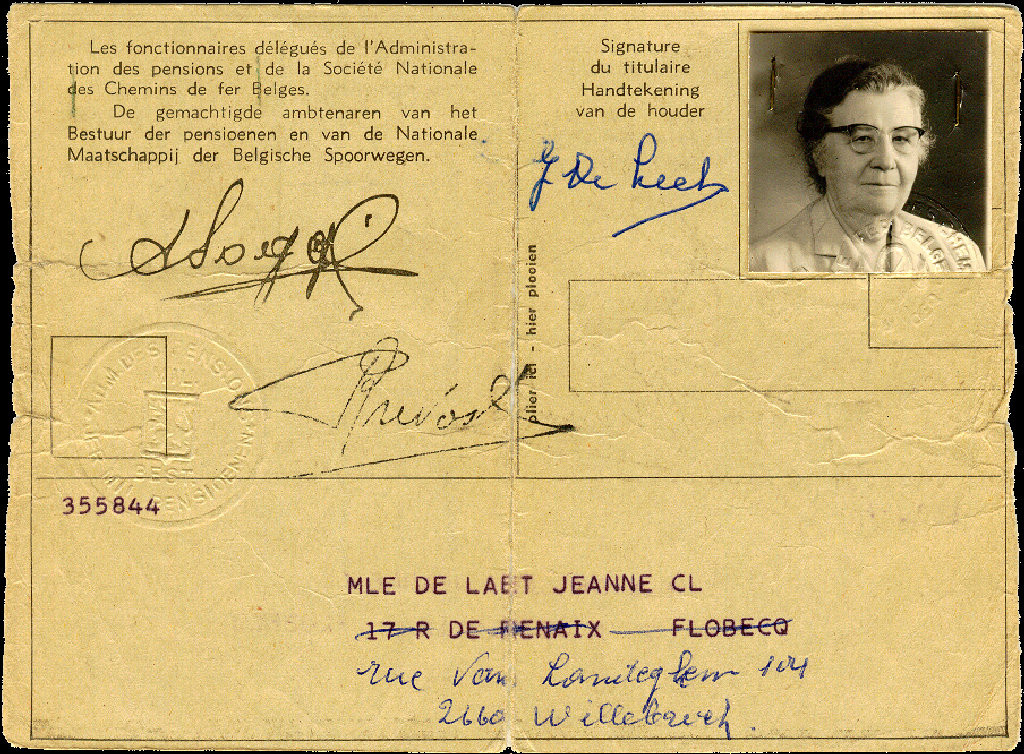 Les fonctionnaires délégués de l'Administra-
tion des pensions et de la Société Nationale
des Chemins de fer Belges.
De gemachtigde ambtenaren van het
Bestuur der pensioenen en van de Nationale
Maatschappij der Belgische Spoorwegen.
Signature
du titulaire
Handtekening
van de houder
J De Laet
plier ici - hier plooien
Prévost
355844
MLE DE LAET JEANNE CL
17 R DE RENAIX FLOBECQ
rue Van 104
2660 Willebroek.